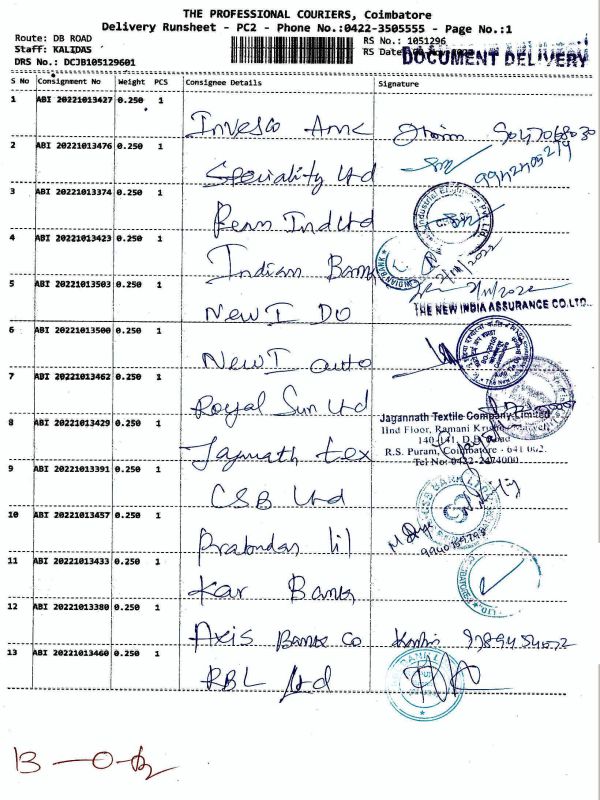 THE PROFESSIONAL COURIERS, Coimbatore
Delivery Runsheet - PC2 - Phone No.:0422-3505555 - Page No.:1
Route: DB ROAD
Staff: KALIDAS
DRS No.: DCJB105129601
RS No.: 1051296
RS Date
DOCUMENT DELIVERY
S No Consignment No Weight PCS Consignee Details Signature
1 ABI 20221013427 0.250 1 Invesco Amc
2 ABI 20221013476 0.250 1 Speciality Ltd
3 ABI 20221013374 0.250 1 Penn Ind Ltd
4 ABI 20221013423 0.250 1 Indian Bank
5 ABI 20221013503 0.250 1 New I DO
THE NEW INDIA ASSURANCE CO.LTD.
6 ABI 20221013500 0.250 1 New I auto
7 ABI 20221013462 0.250 1 Royal Sun Ltd
8 ABI 20221013429 0.250 1 Jagnnath tex
Jagannath Textile Company Limited
IInd Floor, Ramani
140-141, D.B. Road
R.S. Puram, Coimbatore - 641 002.
Tel No: 0422-2474000
9 ABI 20221013391 0.250 1 CSB Ltd
CSB BANK LTD
10 ABI 20221013457 0.250 1
11 ABI 20221013433 0.250 1 Kar Bank
12 ABI 20221013380 0.250 1 Axis Bank Co
13 ABI 20221013460 0.250 1 RBL Ltd
13 - 0 -